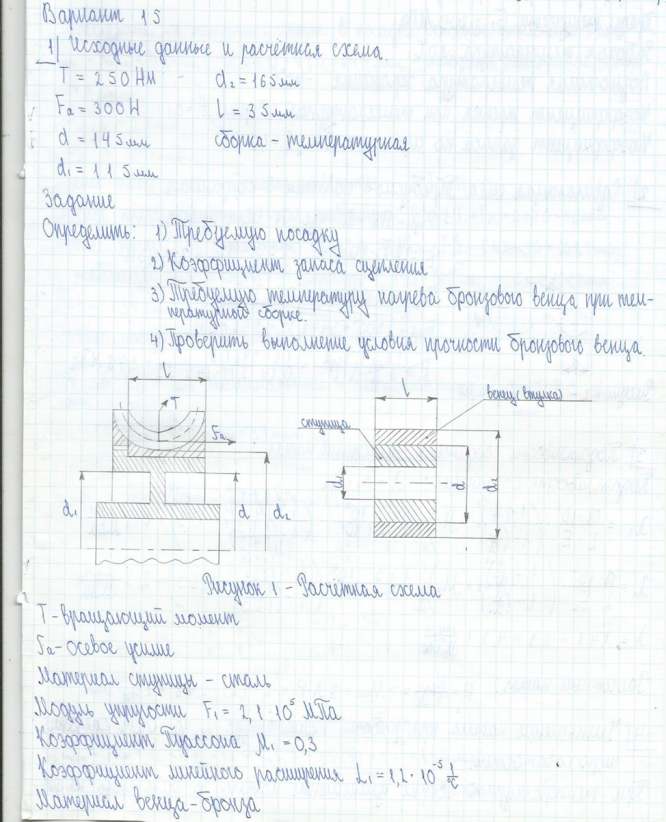 Вариант 15
1) Исходные данные и расчётная схема.
T = 250 Нм   d₂ = 165 мм
Fa = 300 Н   l = 35 мм
d = 145 мм   сборка - температурная
d₁ = 115 мм
Задание
Определить: 1) Требуемую посадку
2) Коэффициент запаса сцепления
3) Требуемую температуру нагрева бронзового венца при тем-
пературной сборке.
4) Проверить выполнение условия прочности бронзового венца.
l
T
Fa
d₁
d
d₂
l
венец (втулка)
ступица
d₁
d
d₂
Рисунок 1 - Расчётная схема
T - вращающий момент
Fa - осевое усилие
Материал ступицы - сталь
Модуль упругости E₁ = 2,1·10⁵ МПа
Коэффициент Пуассона M₁ = 0,3
Коэффициент линейного расширения L₁ = 1,2·10⁻⁵ 1/°C
Материал венца - бронза